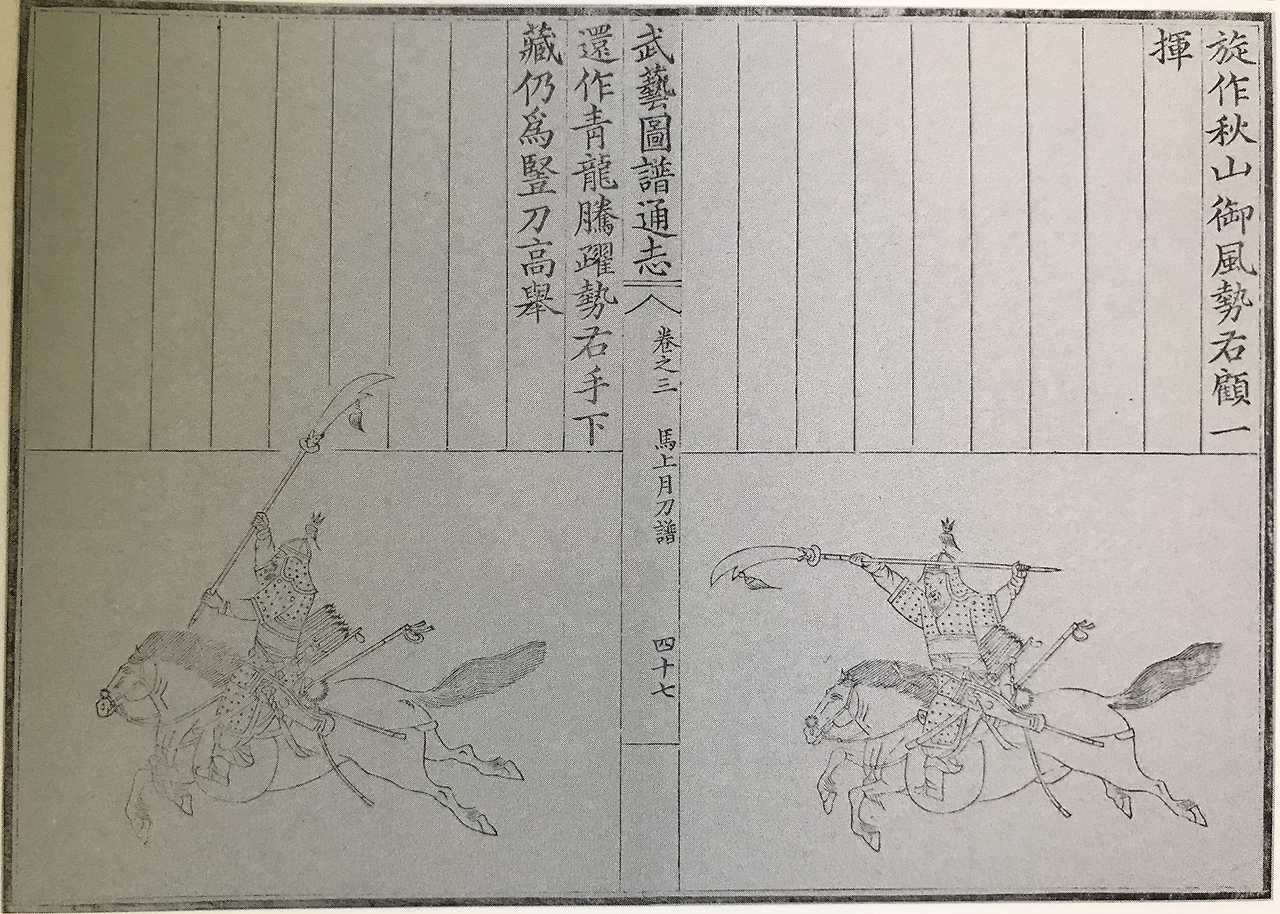 旋作秋山御風勢右顧一
揮
武藝圖譜通志
卷之三
馬上月刀譜
四十七
還作青龍騰躍勢右手下
藏仍爲豎刀高舉